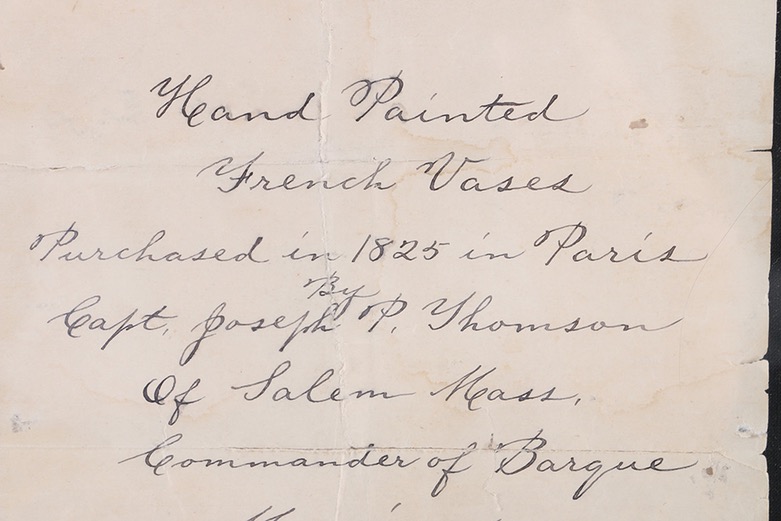 Hand Painted
French Vases
Purchased in 1825 in Paris
By
Capt. Joseph P. Thomson
Of Salem Mass.
Commander of Barque